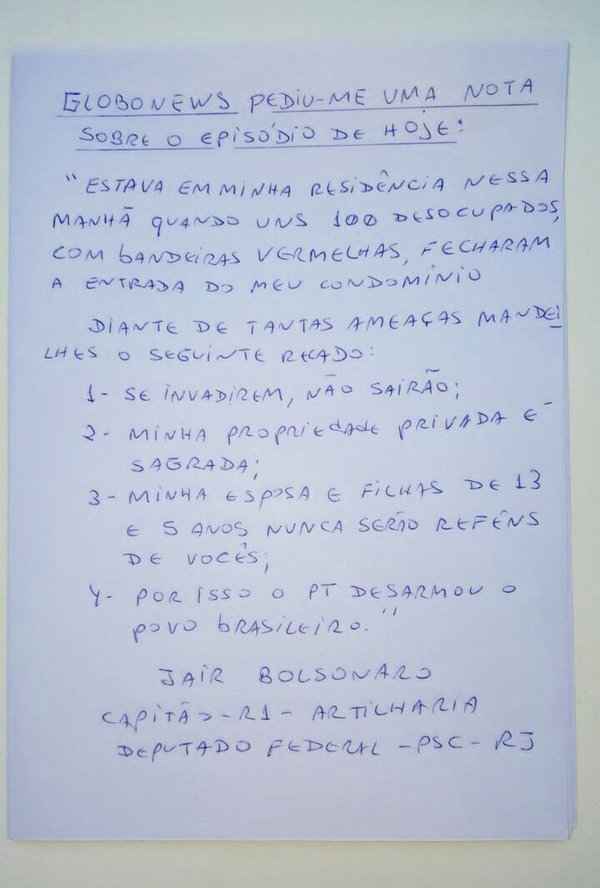 GLOBONEWS PEDIU-ME UMA NOTA
SOBRE O EPISÓDIO DE HOJE:
"ESTAVA EM MINHA RESIDÊNCIA NESSA
MANHÃ QUANDO UNS 100 DESOCUPADOS,
COM BANDEIRAS VERMELHAS, FECHARAM
A ENTRADA DO MEU CONDOMÍNIO
DIANTE DE TANTAS AMEAÇAS MANDEI
LHES O SEGUINTE RECADO:
1- SE INVADIREM, NÃO SAIRÃO;
2- MINHA PROPRIEDADE PRIVADA É
SAGRADA;
3- MINHA ESPOSA E FILHAS DE 13
E 5 ANOS NUNCA SERÃO REFÉNS
DE VOCÊS;
4- POR ISSO O PT DESARMOU O
POVO BRASILEIRO."
JAIR BOLSONARO
CAPITÃO-R1- ARTILHARIA
DEPUTADO FEDERAL -PSC- RJ